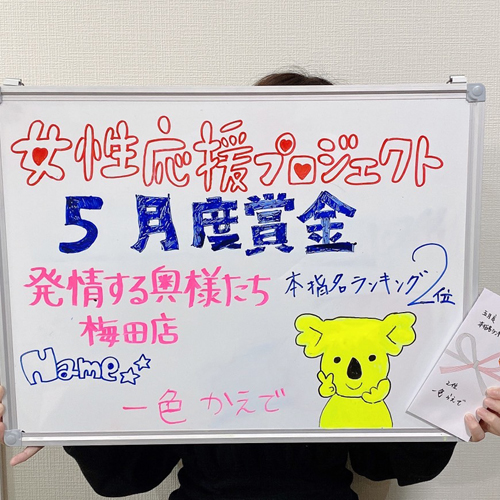 女性応援プロジェクト
5月度賞金
発情する奥様たち
梅田店
本指名ランキング2位
Name
一色 かえで
5月度
本指名ランキ
2位
一色 かえで